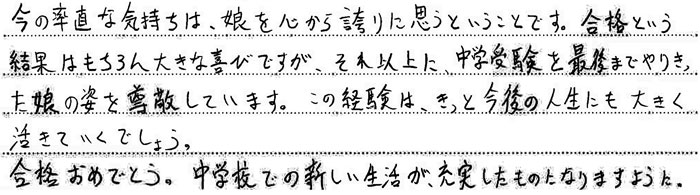 今の率直な気持ちは、娘を心から誇りに思うということです。合格という
結果はもちろん大きな喜びですが、それ以上に、中学受験を最後までやりきっ
た娘の姿を尊敬しています。この経験は、きっと今後の人生にも大きく
活きていくでしょう。
合格おめでとう。中学校での新しい生活が、充実したものになりますように。